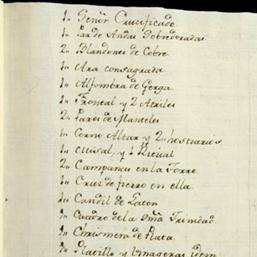 1,, Señor Crucificado
1,, Par de Andas Sobredoradas
2,, Blandones de Cobre
1,, Ara consagrada
1,, Alfombra de Gerga
1,, Frontal y 2 Atriles
2,, Pares de Manteles
1,, Corno Altar y 2
1,, Misal, y 1 Ritual
2,, Campanas en la Torre
1,, Cruz de fierro en ella
1,, Candil de Laton
1,, Cuadro de la SSma Trinidad
1,, Chrismera de Plata
1,, Platillo y Vinageras Ydem